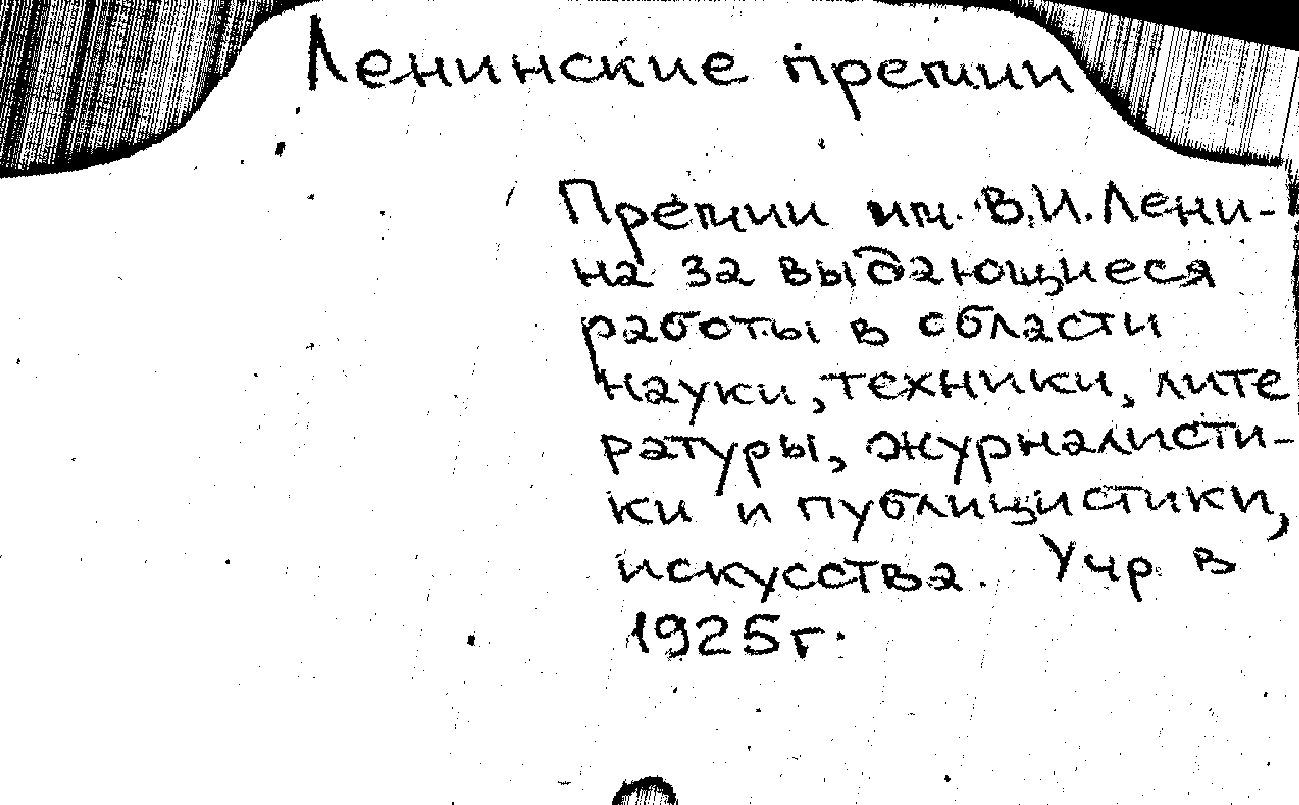 Ленинские премии
Премии им. В.И. Лени-
на за выдающиеся
работы в области
науки, техники, лите
ратуры, журналисти-
ки и публицистики,
искусства. Учр в
1925 г.